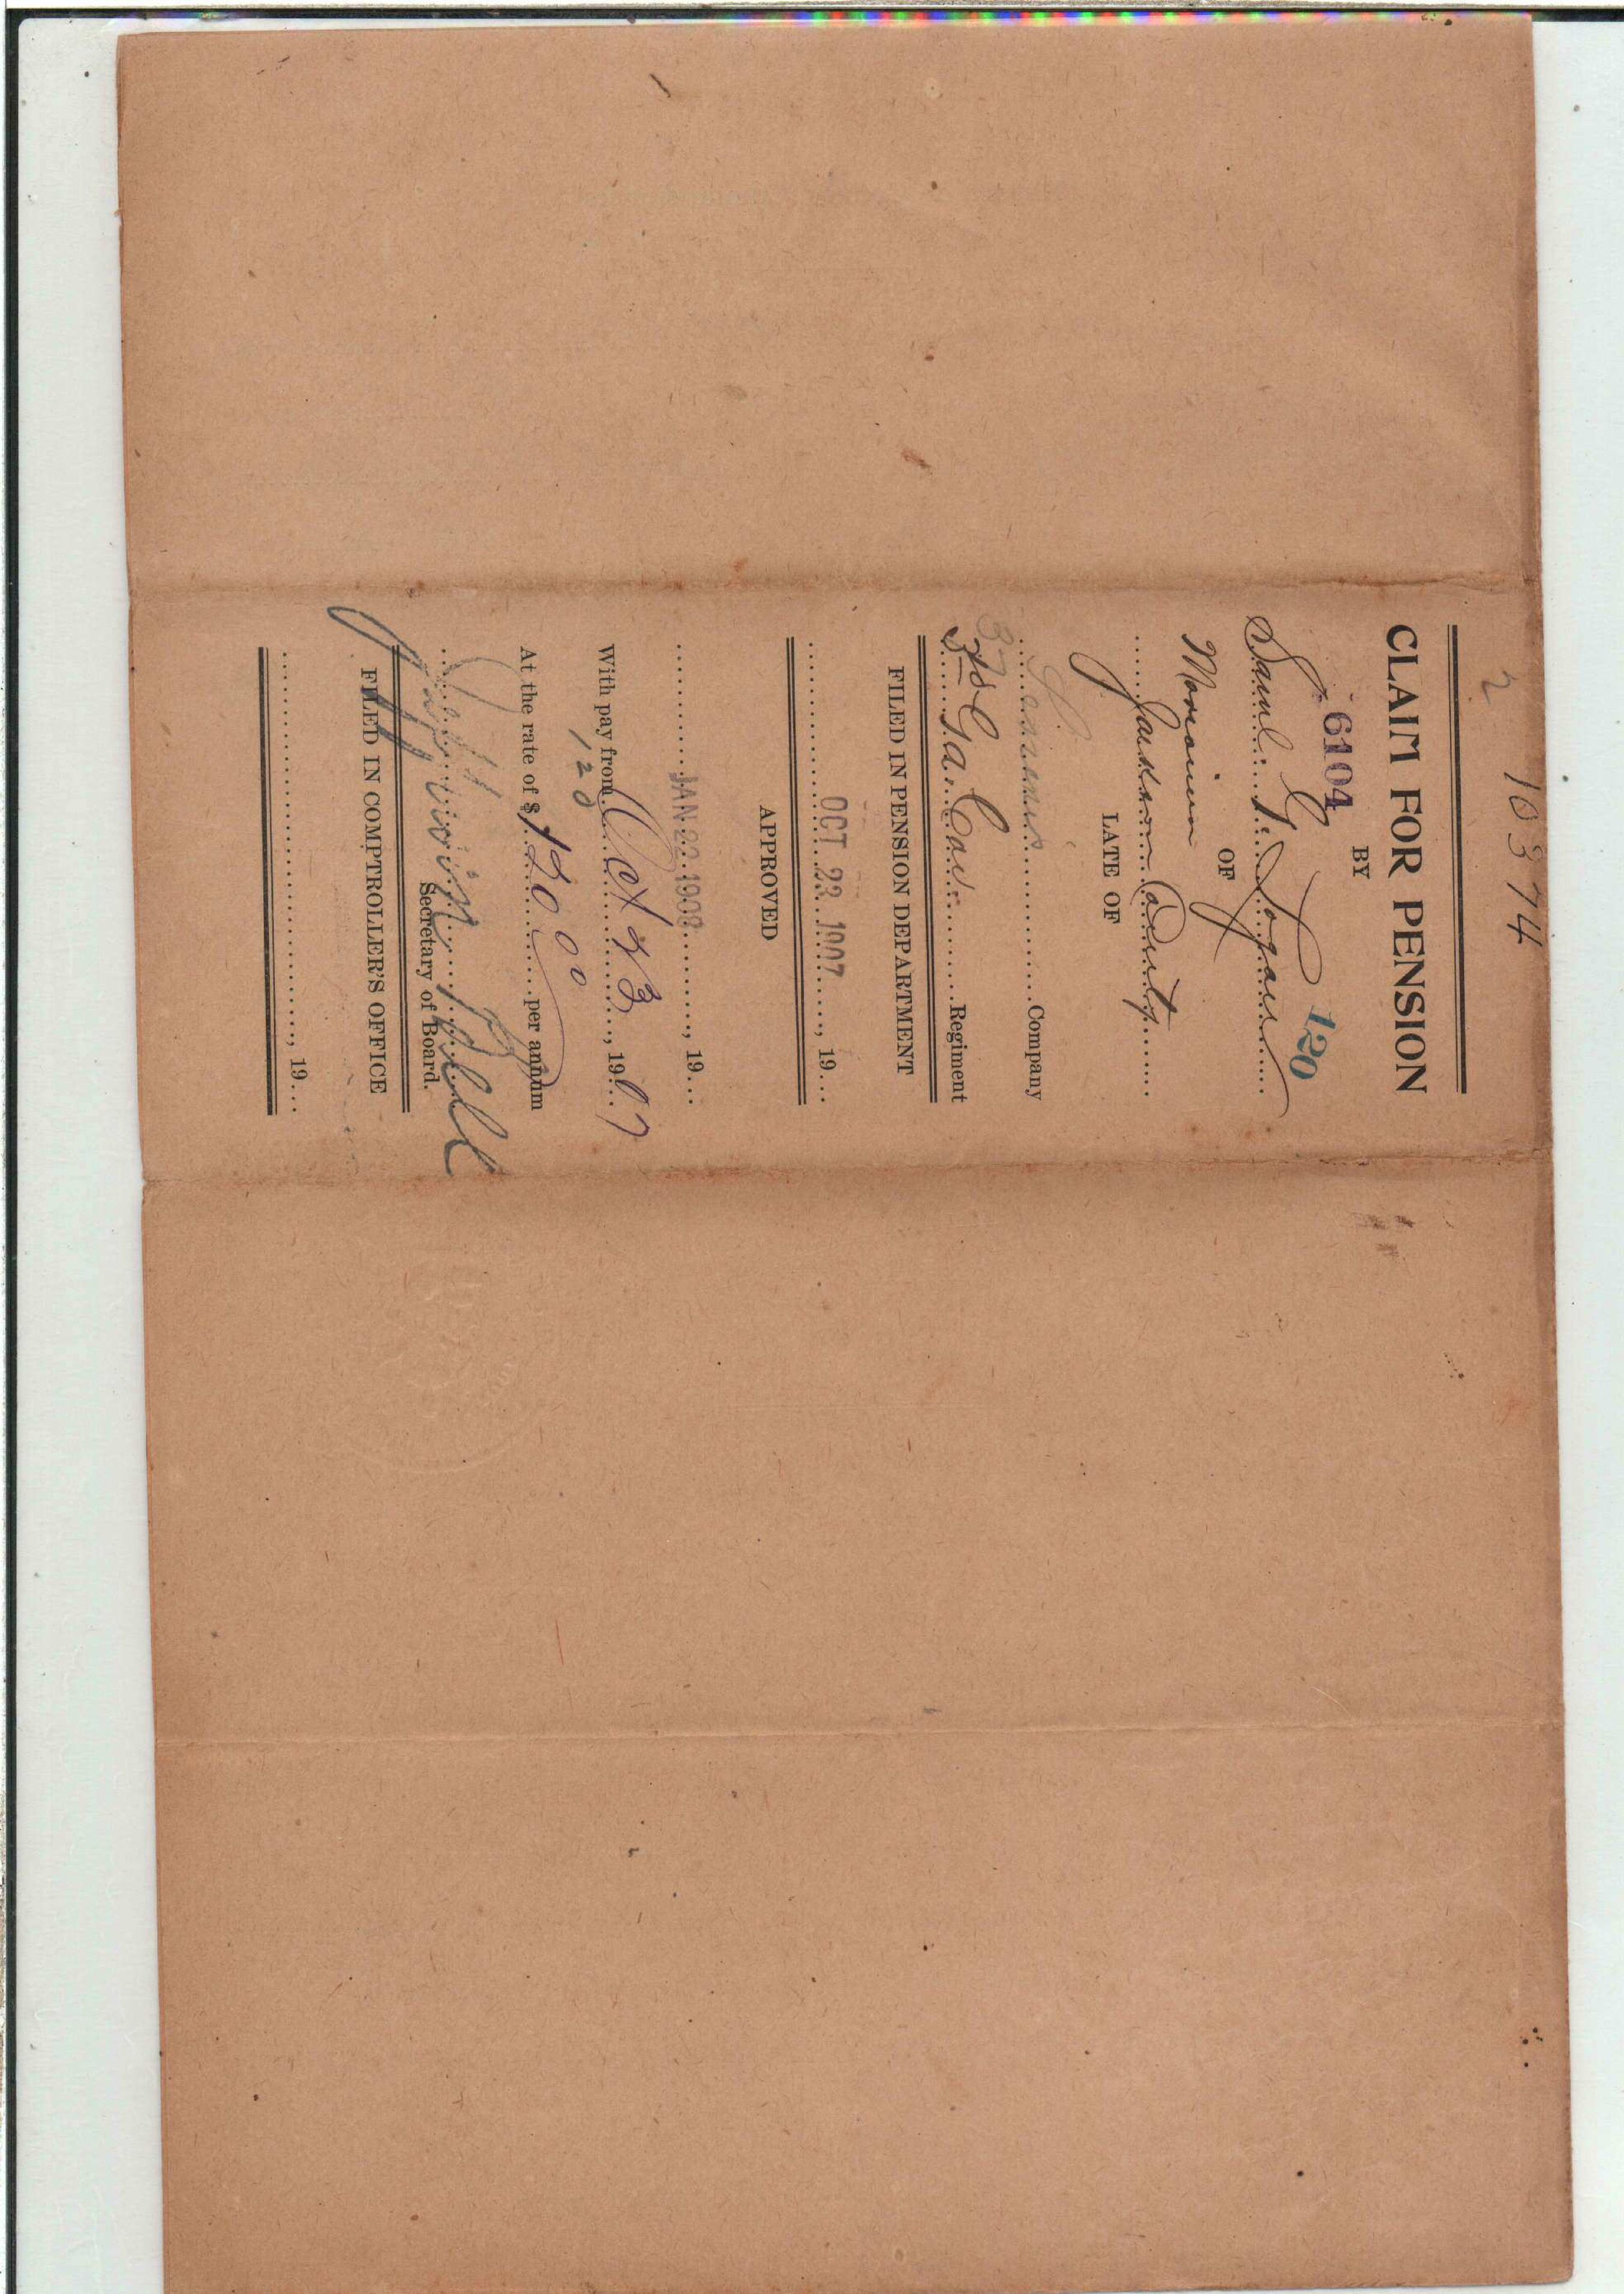 2
10374
CLAIM FOR PENSION
BY
6104
120
Saml G. Logan
OF
Marianna
Jackson County
LATE OF
Company
Ga Cav Regiment
FILED IN PENSION DEPARTMENT
OCT 23 1907, 19
APPROVED
JAN 22 1908, 19
With pay from Oct 23, 1907
120
At the rate of $ 120 00 per annum
Bell
Secretary of Board.
FILED IN COMPTROLLER'S OFFICE
, 19